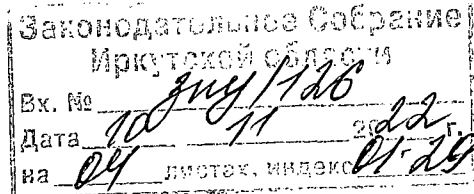 Законодательное Собрание
Иркутской области
Вх. № зпч/126
Дата 10 11 2022 г.
на 04 листах, индекс 01-29